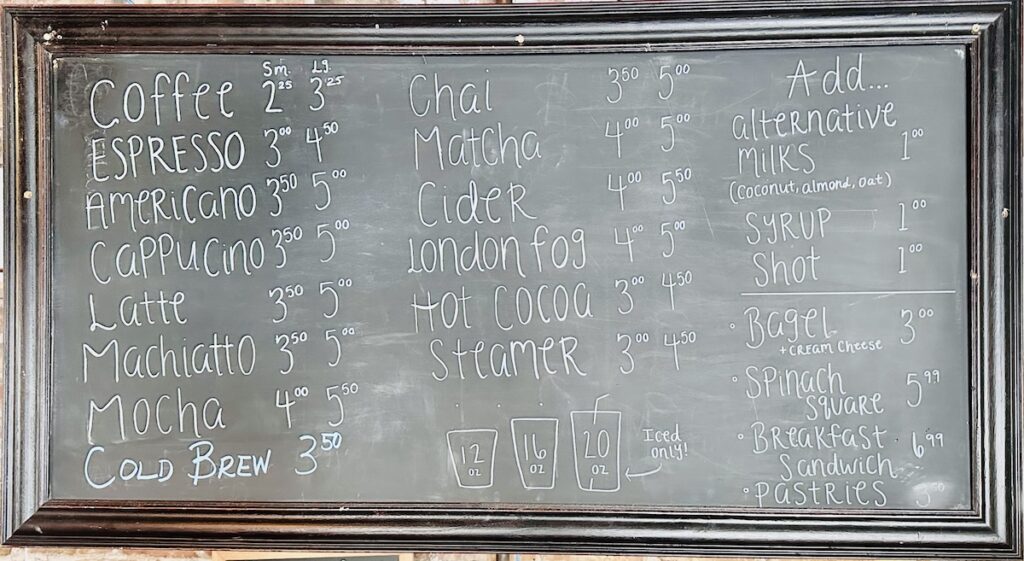 Sm. Lg.
Coffee 2.25 3.25
ESPRESSO 3.00 4.50
AMERICANO 3.50 5.00
CAPPUCINO 3.50 5.00
Latte 3.50 5.00
Machiatto 3.50 5.00
Mocha 4.00 5.50
COLD BREW 3.50
Chai 3.50 5.00
Matcha 4.00 5.00
Cider 4.00 5.50
London Fog 4.00 5.00
Hot Cocoa 3.00 4.50
Steamer 3.00 4.50
12 oz
16 oz
20 oz
Iced only!
Add...
alternative
milks 1.00
(coconut, almond, oat)
Syrup 1.00
Shot 1.00
• Bagel 3.00
+ cream cheese
• Spinach
Square 5.99
• Breakfast
Sandwich 6.99
• Pastries